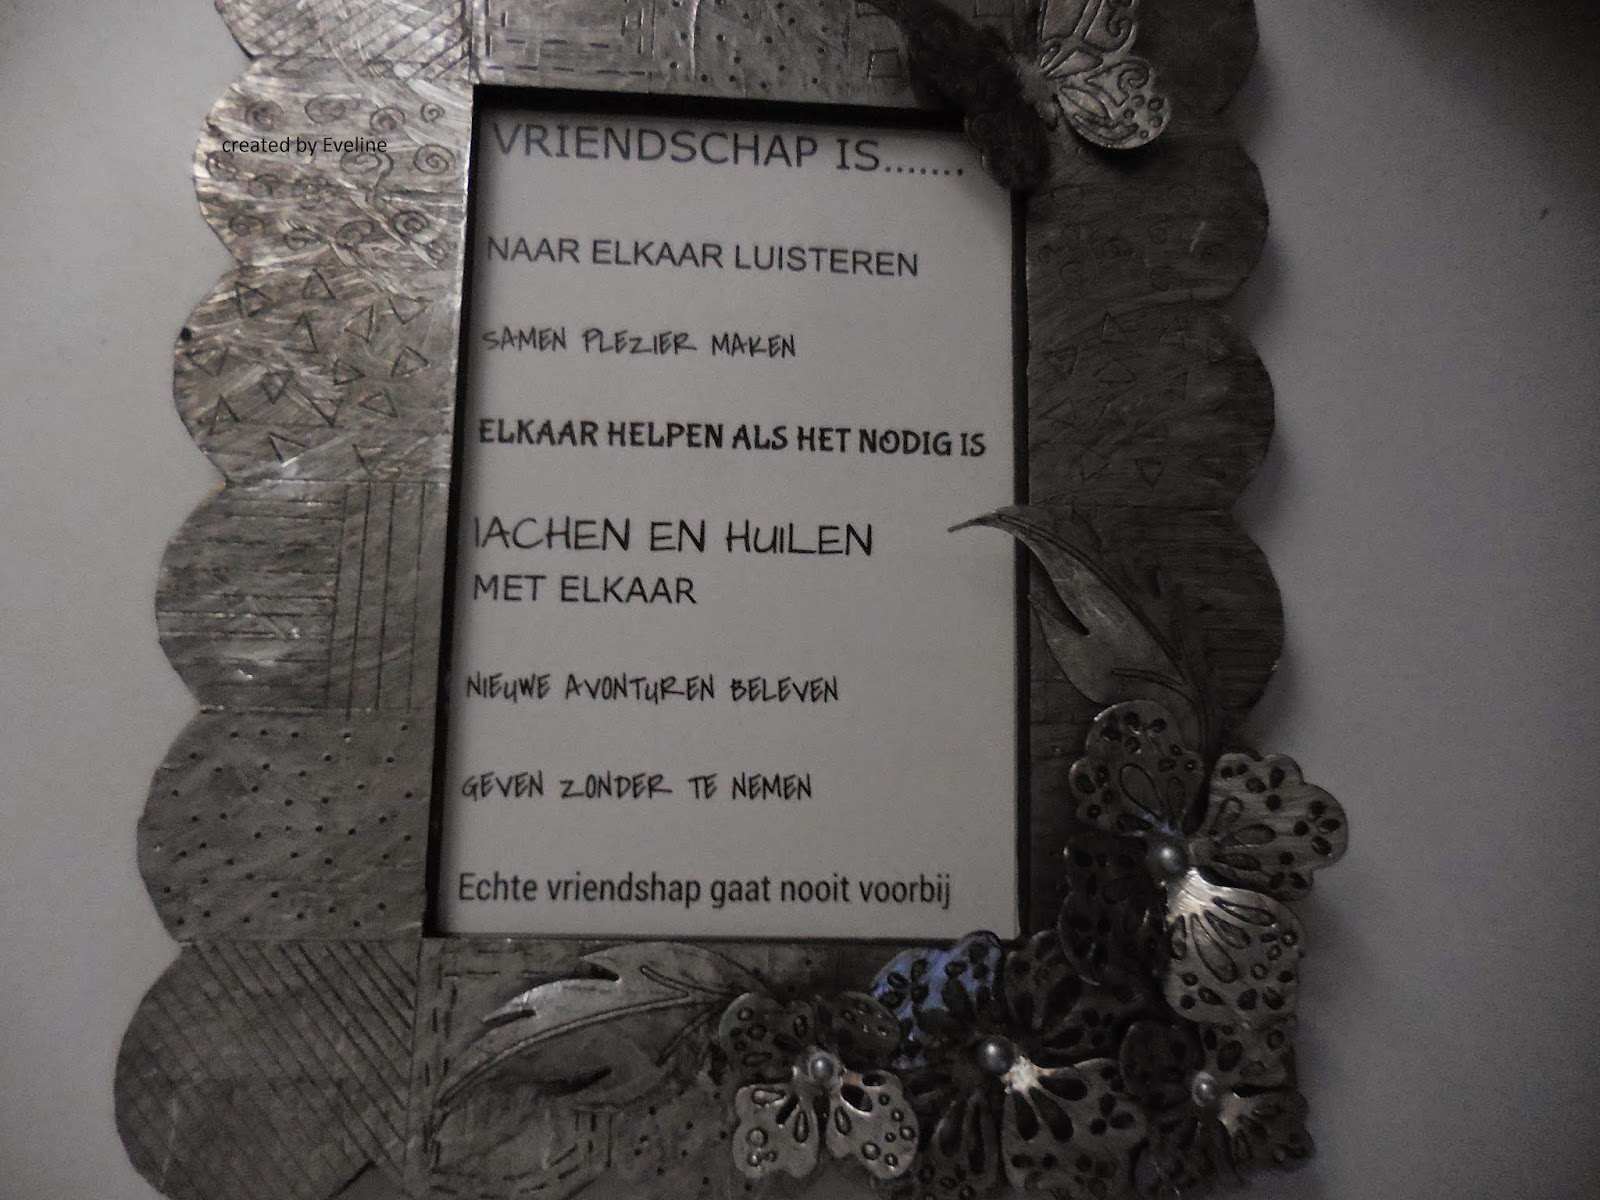 created by Eveline
VRIENDSCHAP IS.......
NAAR ELKAAR LUISTEREN
SAMEN PLEZIER MAKEN
ELKAAR HELPEN ALS HET NODIG IS
lACHEN EN HUILEN
MET ELKAAR
NIEUWE AVONTUREN BELEVEN
GEVEN ZONDER TE NEMEN
Echte vriendshap gaat nooit voorbij